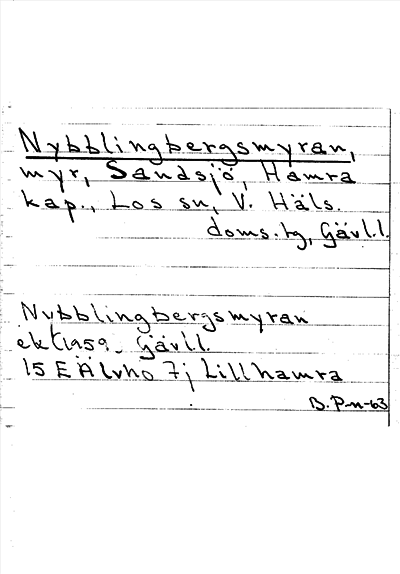 Nybblingbergsmyran,
myr, Sandsjö, Hamra
kap., Los sn, V. Häls.
doms.tg, Gävl.l.
Nybblingbergsmyran
ekk 1959 Gävl.l.
15 E Älvho 7j Lillhamra
B. P-n-63